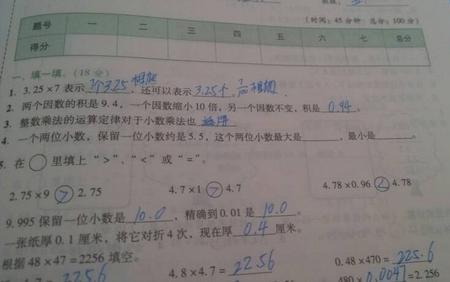 (时间：45分钟 总分：100分)
题号 一 二 三 四 五 六 七 总分
得分
一、填一填。(18分)
1. 3.25×7表示7个3.25相加,还可以表示3.25个7相加。
2. 两个因数的积是9.4,一个因数缩小10倍,另一个因数不变,积是0.94。
3. 整数乘法的运算定律对于小数乘法也适用
4. 一个两位小数,保留一位小数约是5.5,这个两位小数最大是______,最小是______。
5. 在○里填上“>”、“<”或“=”。
2.75×9 > 2.75 4.7×1 4.7 4.78×0.96 < 4.78
9.995保留一位小数是 10.0 ,精确到0.01是 10.0 。
一张纸厚0.1厘米,将它对折4次,现在厚 0.4 厘米。
根据48×47=2256填空。
4.8×4.7= 22.56 0.48×470= 225.6
= 225.6 480×0.0047=2.256